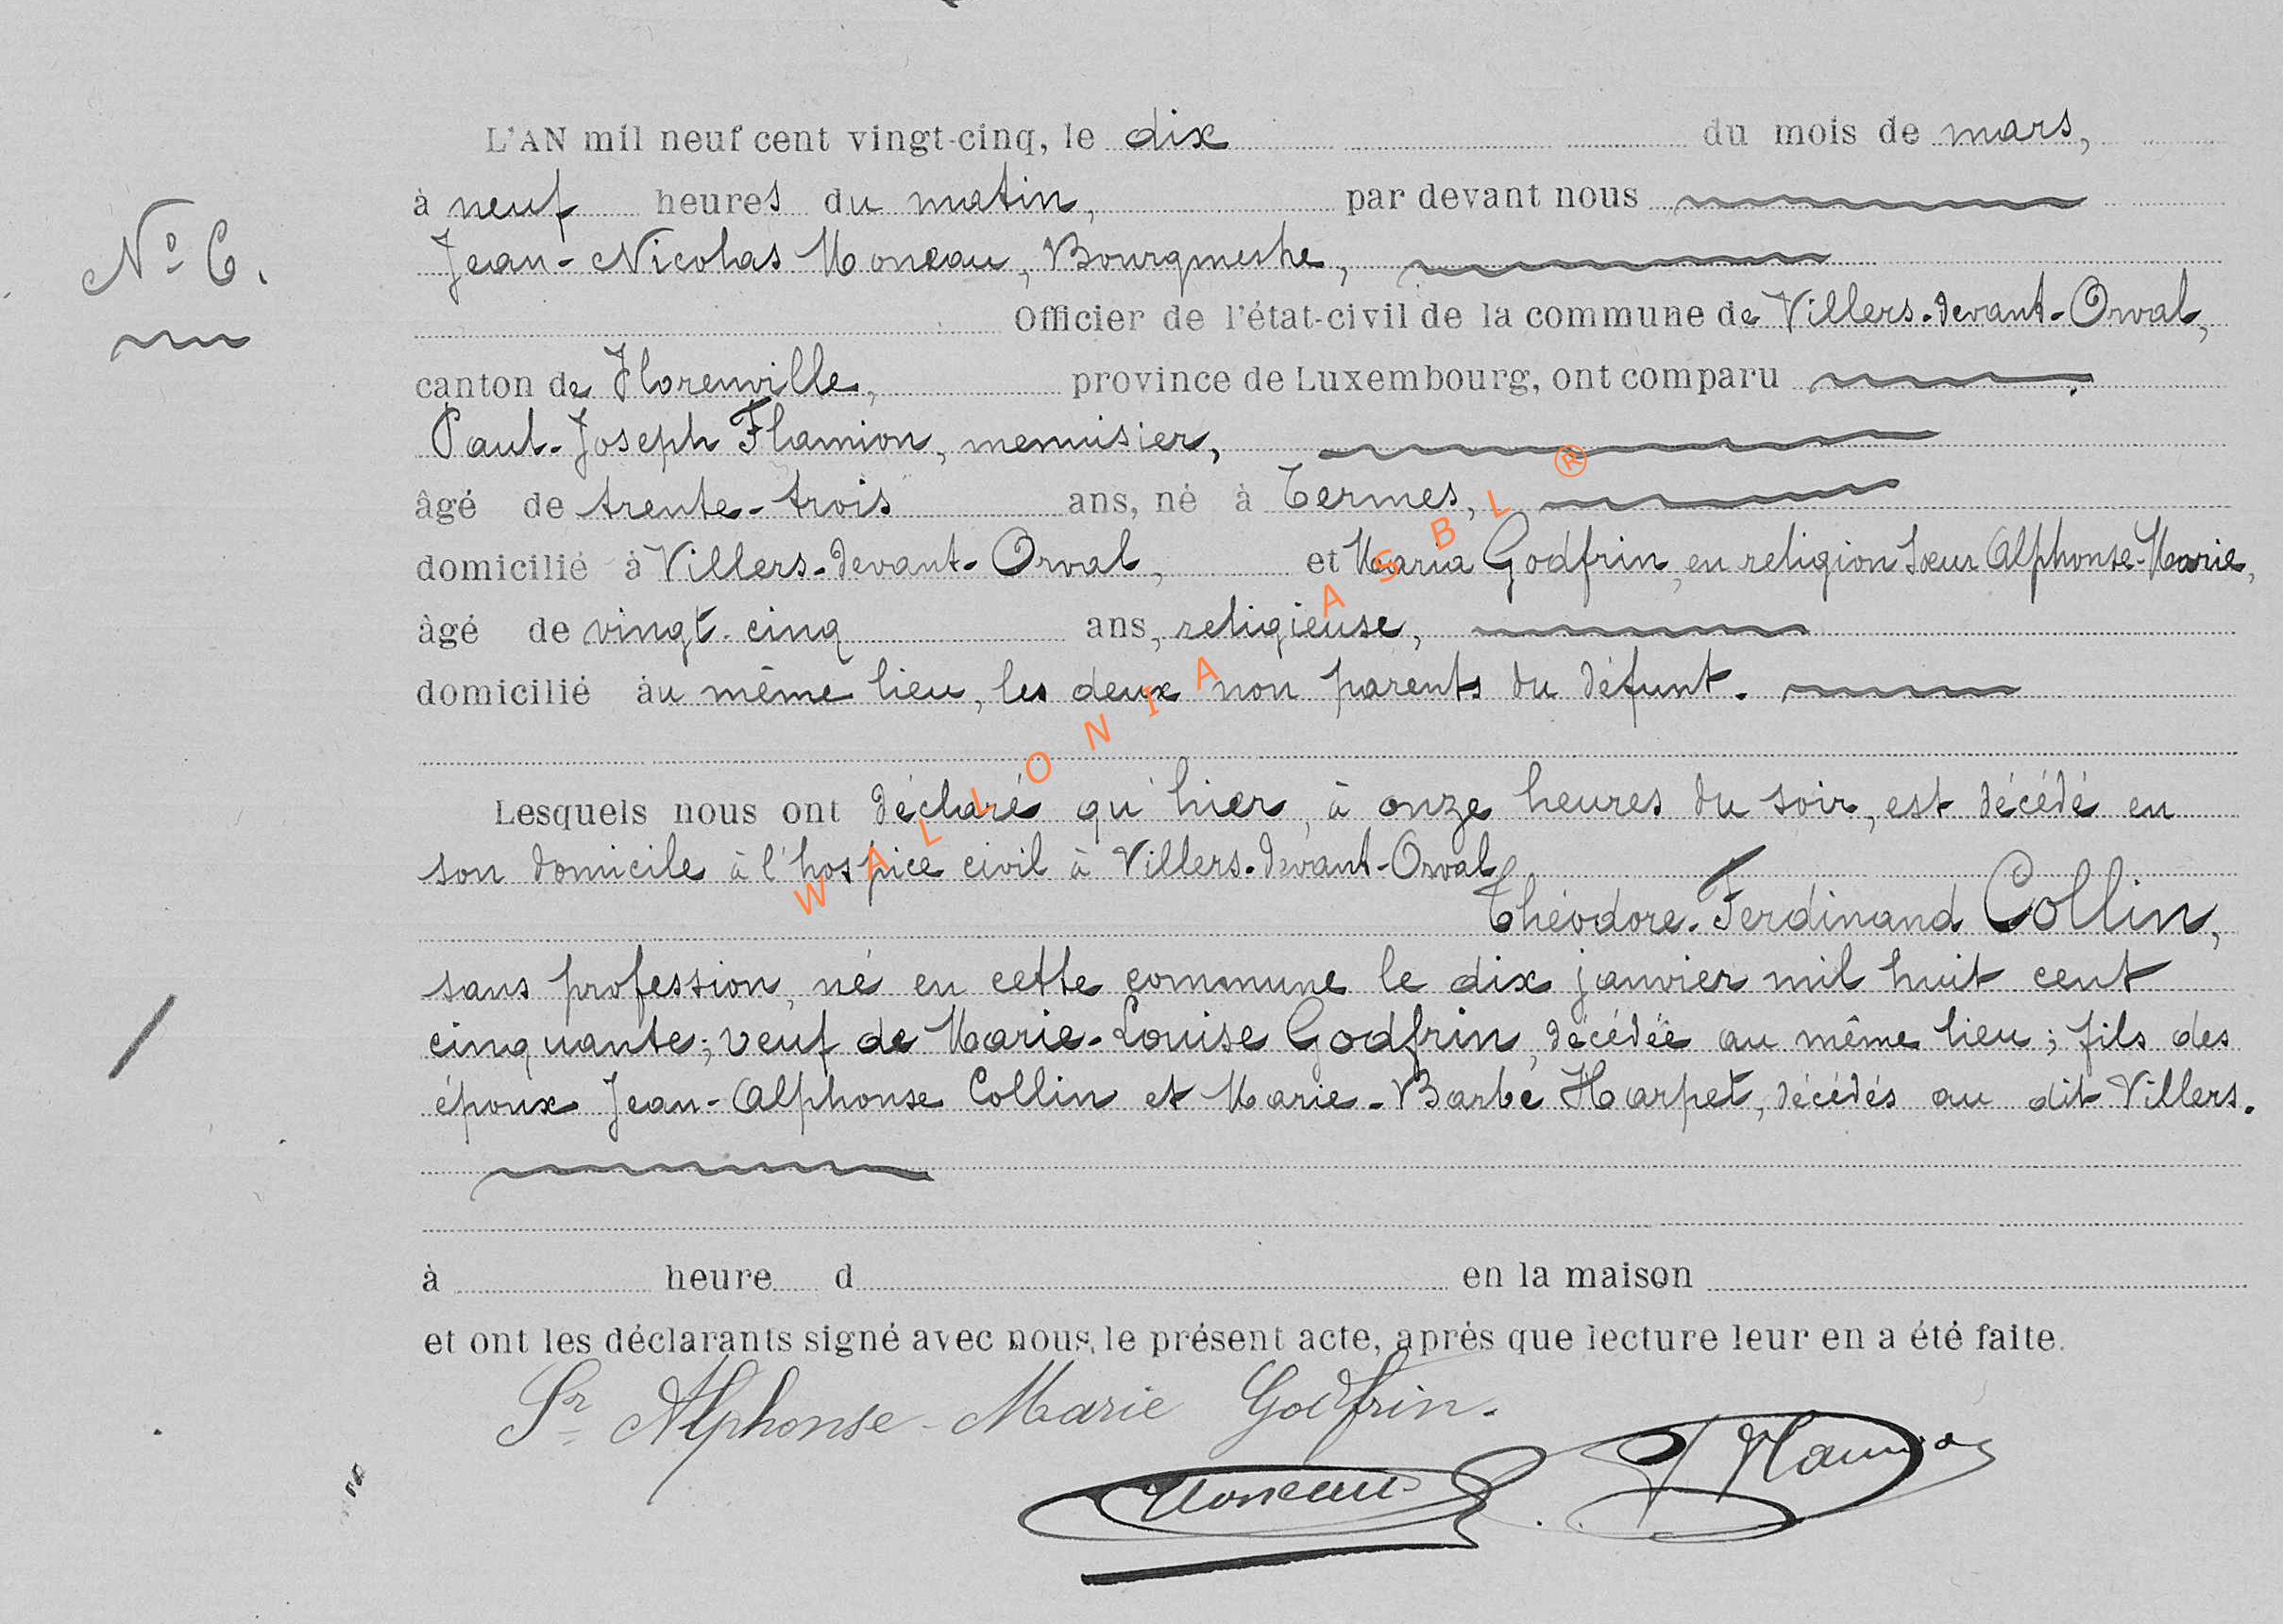 L'AN mil neuf cent vingt-cinq, le dix du mois de mars,
à neuf heures du matin, par devant nous
N° 6.
Jean-Nicolas Moneau, Bourgmestre,
Officier de l'état-civil de la commune de Villers-devant-Orval,
canton de Florenville, province de Luxembourg, ont comparu
Paul-Joseph Flamion, menuisier,
âgé de trente-trois ans, né à Termes,
domicilié à Villers-devant-Orval, et Maria Godfrin, en religion Sœur Alphonse-Marie,
âgé de vingt-cinq ans, religieuse,
domicilié au même lieu, les deux non parents du défunt.
Lesquels nous ont déclaré qu'hier, à onze heures du soir, est décédé en
son domicile à l'hospice civil à Villers-devant-Orval
Théodore-Ferdinand Collin,
sans profession, né en cette commune le dix janvier mil huit cent
cinquante; veuf de Marie-Louise Godfrin, décédée au même lieu; fils des
époux Jean-Alphonse Collin et Marie-Barbe Harpet, décédés au dit Villers.
à heure d en la maison
et ont les déclarants signé avec nous, le présent acte, après que lecture leur en a été faite.
Sr Alphonse-Marie Godfrin.
Moneau
WALLONIA ASBL ®